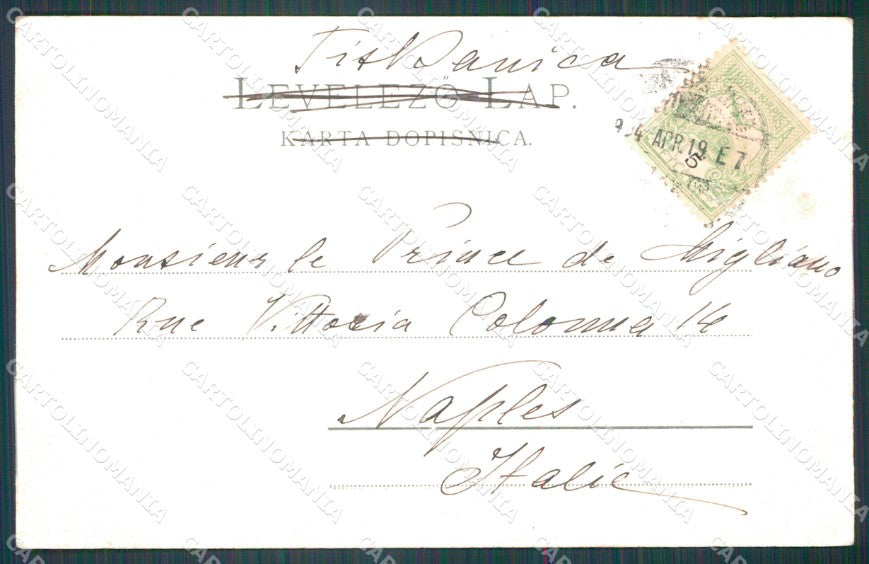 Tiskanica
LEVELEZŐ LAP.
KARTA DOPISNICA.
904 APR 19 E 7
5
Monsieur le Prince de Migliano
Rue Vittoria Colonna 14
Naples
Italie
CARTOLINOMANIA